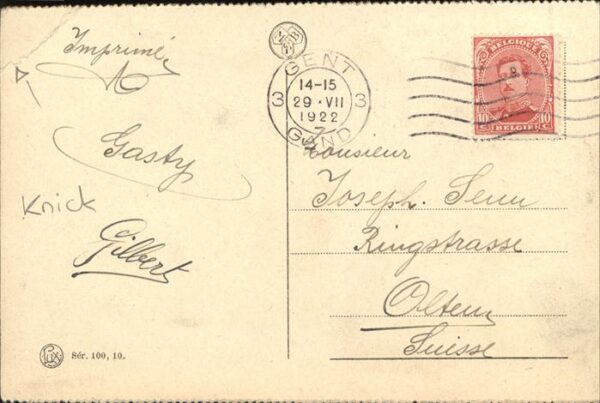 Imprimé
Gasty
Knick
Gilbert
Sér. 100, 10.
GENT
14-15
3 29·VII 3
1922
GAND
BELGIQUE
10 10
BELGIË
Monsieur
Joseph Senn
Ringstrasse
Olten
Suisse